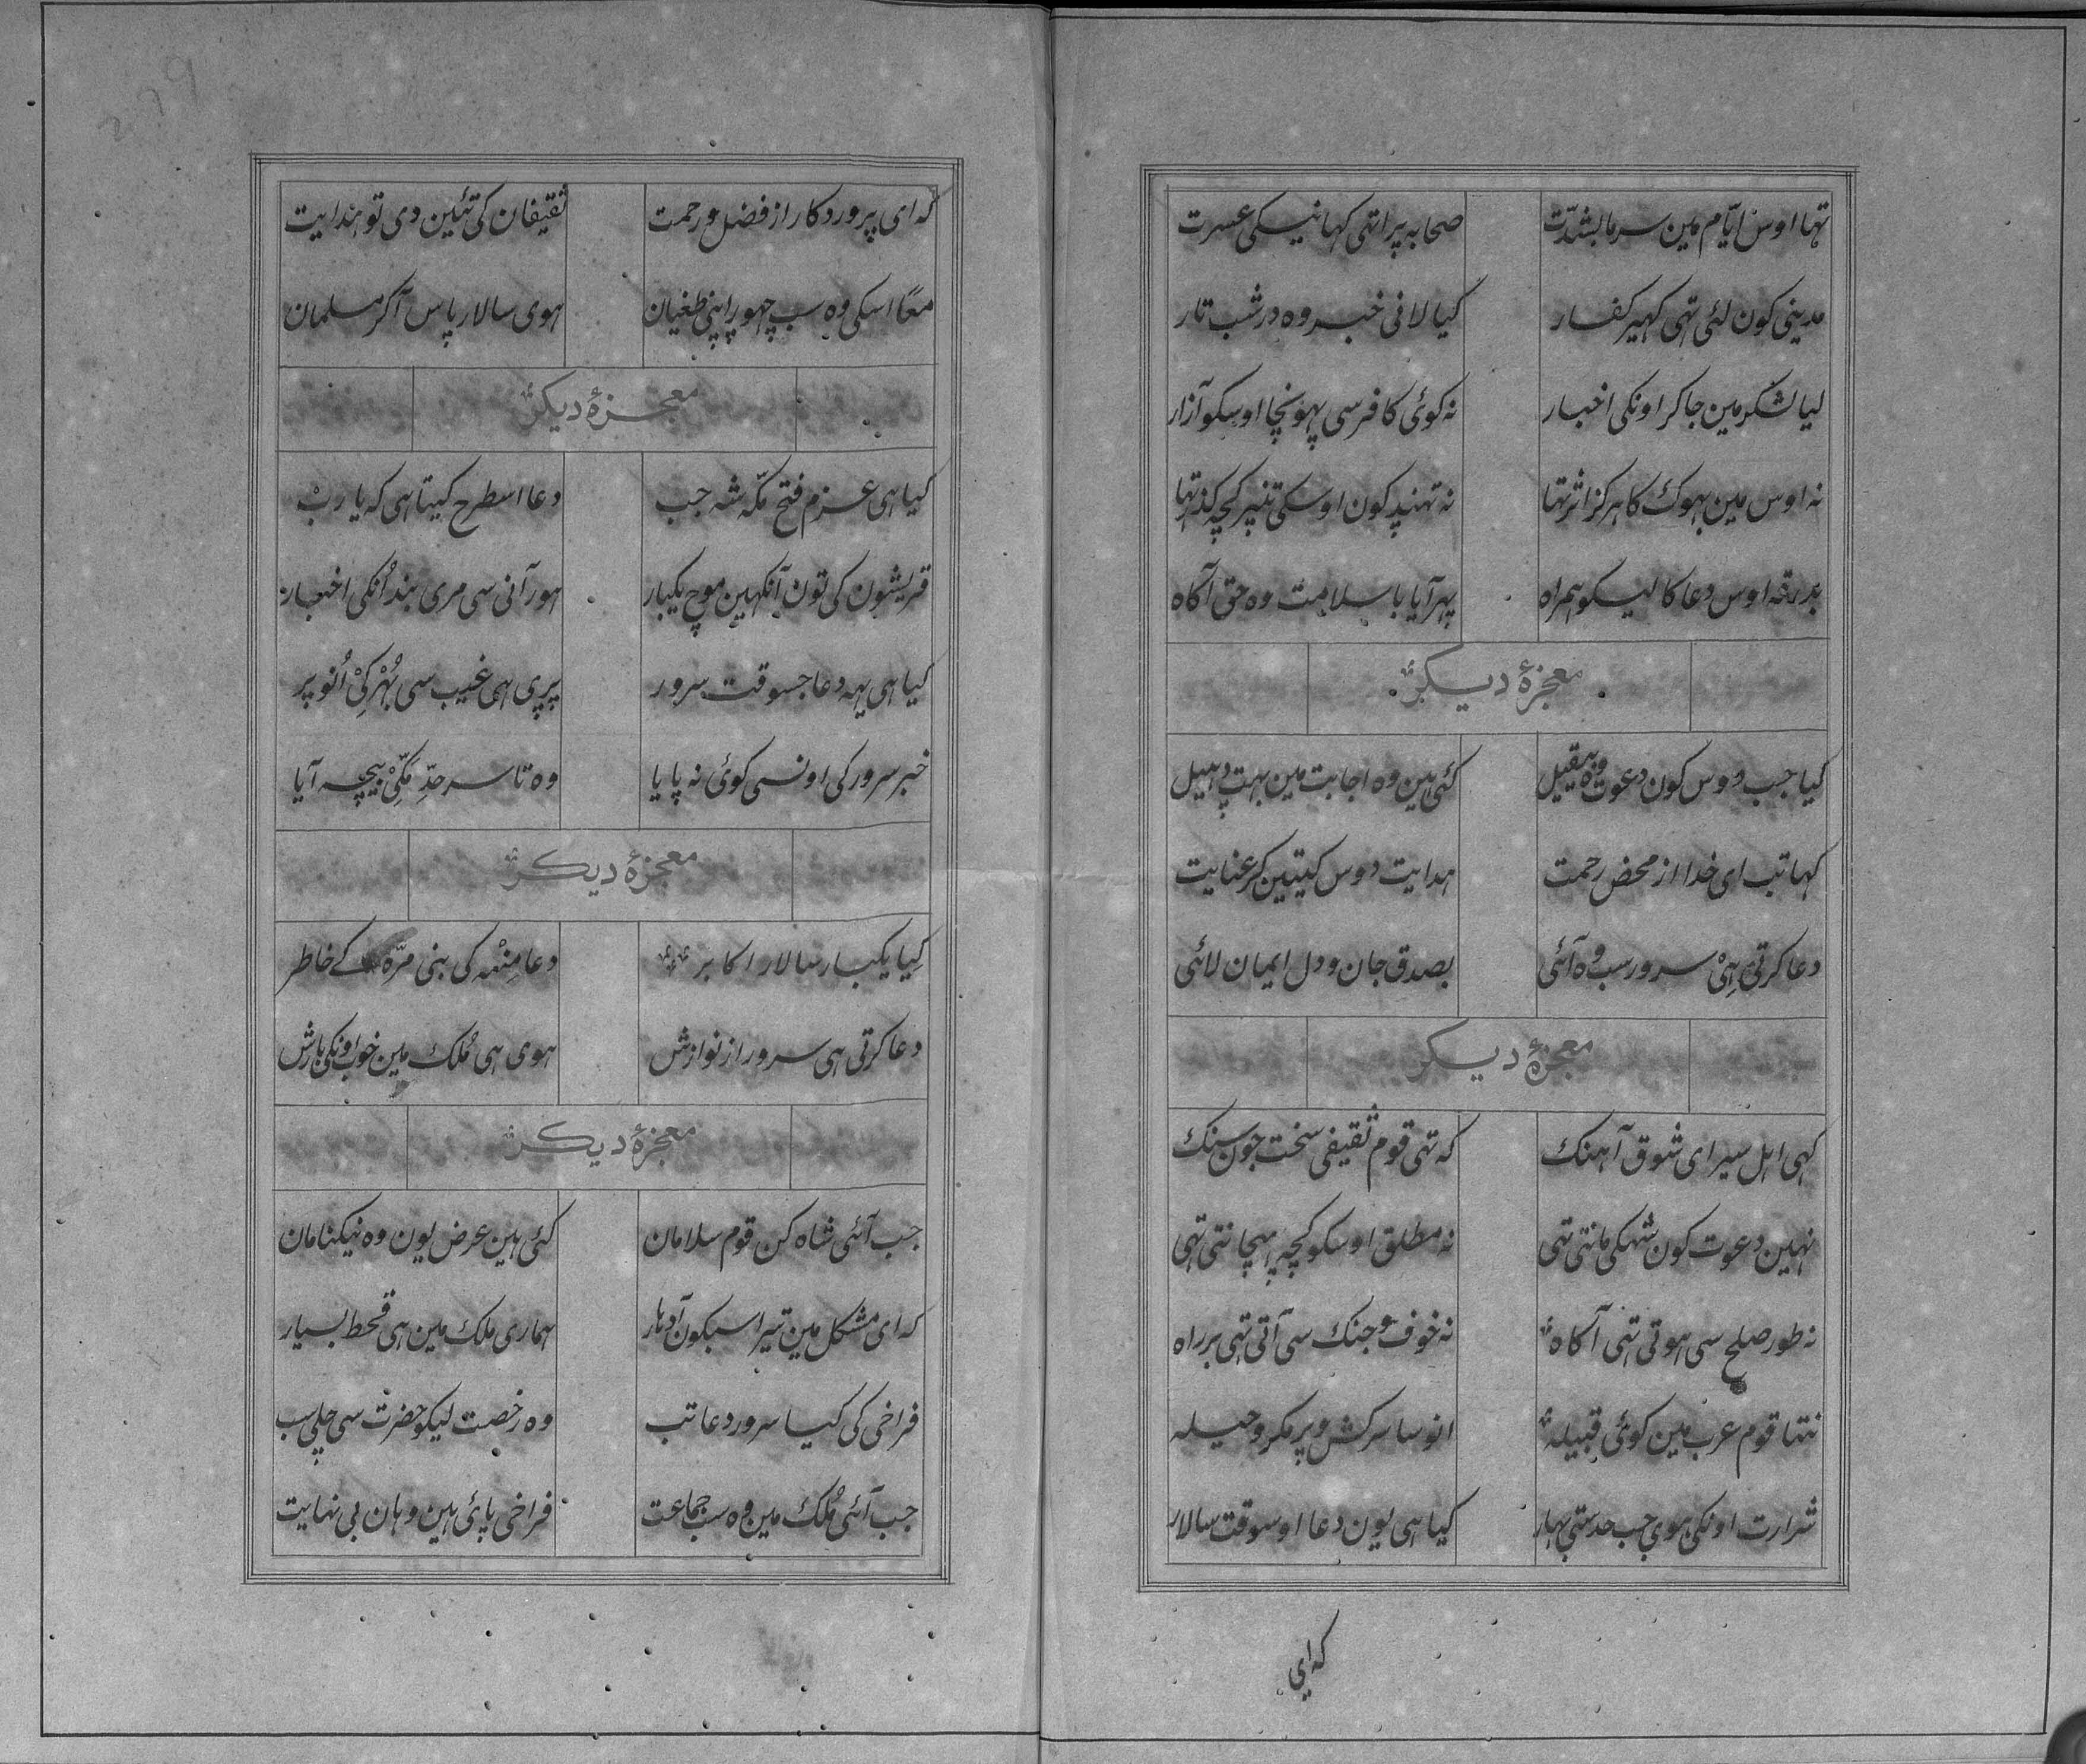 تها اوس ایّام مین سرما بشدّت صحابه پر اتهی کهانیکی عسرت
مدینی کون لئی تهی کهیر کفار کیا لانی خبر وه در شب تار
لیا لشکر مین جا کر اونکی اخبار نه کوئی کافر سی پهونچا اوسکو آزار
نه اوس مین بهوک کا هرکز اثر تها نه تهند کون اوسکی تنپر کچه کذر تها
بدرقه اوس دعا کا لیکو همراه پهر آیا با سلامت وه حق آکاه
معجزهٔ دیکر
کیا جب دوس کون دعوت وه بیقیل کئی هین وه اجابت مین بهت دهیل
کها تب ای خدا از محض رحمت هدایت دوس کیتین کر عنایت
دعا کرتی هی سرور سب وه آئی بصدق جان و دل ایمان لائی
معجزهٔ دیکر
کهی اهل سیر ای شوق آهنک که تهی قوم ثقیفی سخت جون سنک
نهین دعوت کون شهکی مانتی تهی نه مطلق اوسکو کچه پهچانتی تهی
نه طور صلح سی هوتی تهی آکاه نه خوف و جنک سی آتی تهی بر راه
نتها قوم عرب مین کوئی قبیله انو سا سرکش و پر مکر و حیله
شرارت اونکی هوی جب حدستی بهار کیا هی یون دعا اوسوقت سالار
که ای
که ای پروردکار از فضل و رحمت ثقیفان کی تئین دی تو هدایت
معًا اسکی وه سب چهور اپنی طغیان هوی سالار پاس آکر مسلمان
معجزهٔ دیکر
کیا هی عزم فتح مکّه شه جب دعا اسطرح کیتا هی که یا ربّ
قریشون کی تون آنکهین موچ یکبار هور آنی سی مری بند اُنکی اخبار
کیا هی یهه دعا جسوقت سرور پری هی غیب سی مُهْر کیْ اُنو پر
خبر سرور کی اونسی کوئی نه پایا وه تا سر حدِّ مکّیْ بیچه آیا
معجزهٔ دیکر
کِیا یکبار سالار اکابر دعا مِنْهه کی بنی مرّه کے خاطر
دعا کرتی هی سرور از نوازش هوی هی مُلک مین خوب اونکی بارش
معجزهٔ دیکر
جب آئی شاه کن قوم سلامان کئی هین عرض یون وه نیکنامان
که ای مشکل مین تیرا سبکون آدهار هماری ملک مین هی قحط بسیار
فراخی کی کیا سرور دعا تب وه رخصت لیکو حضرت سی چلی سب
جب آئی مُلک مین وه سب جماعت فراخی پائی هین وهان بی نهایت